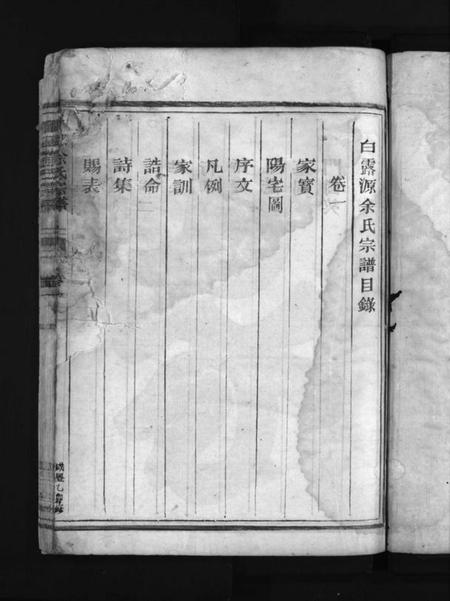 白露源余氏宗譜目錄
卷一
家寶
陽宅圖
序文
凡例
家訓
誥命
詩集
賜表
余氏宗譜